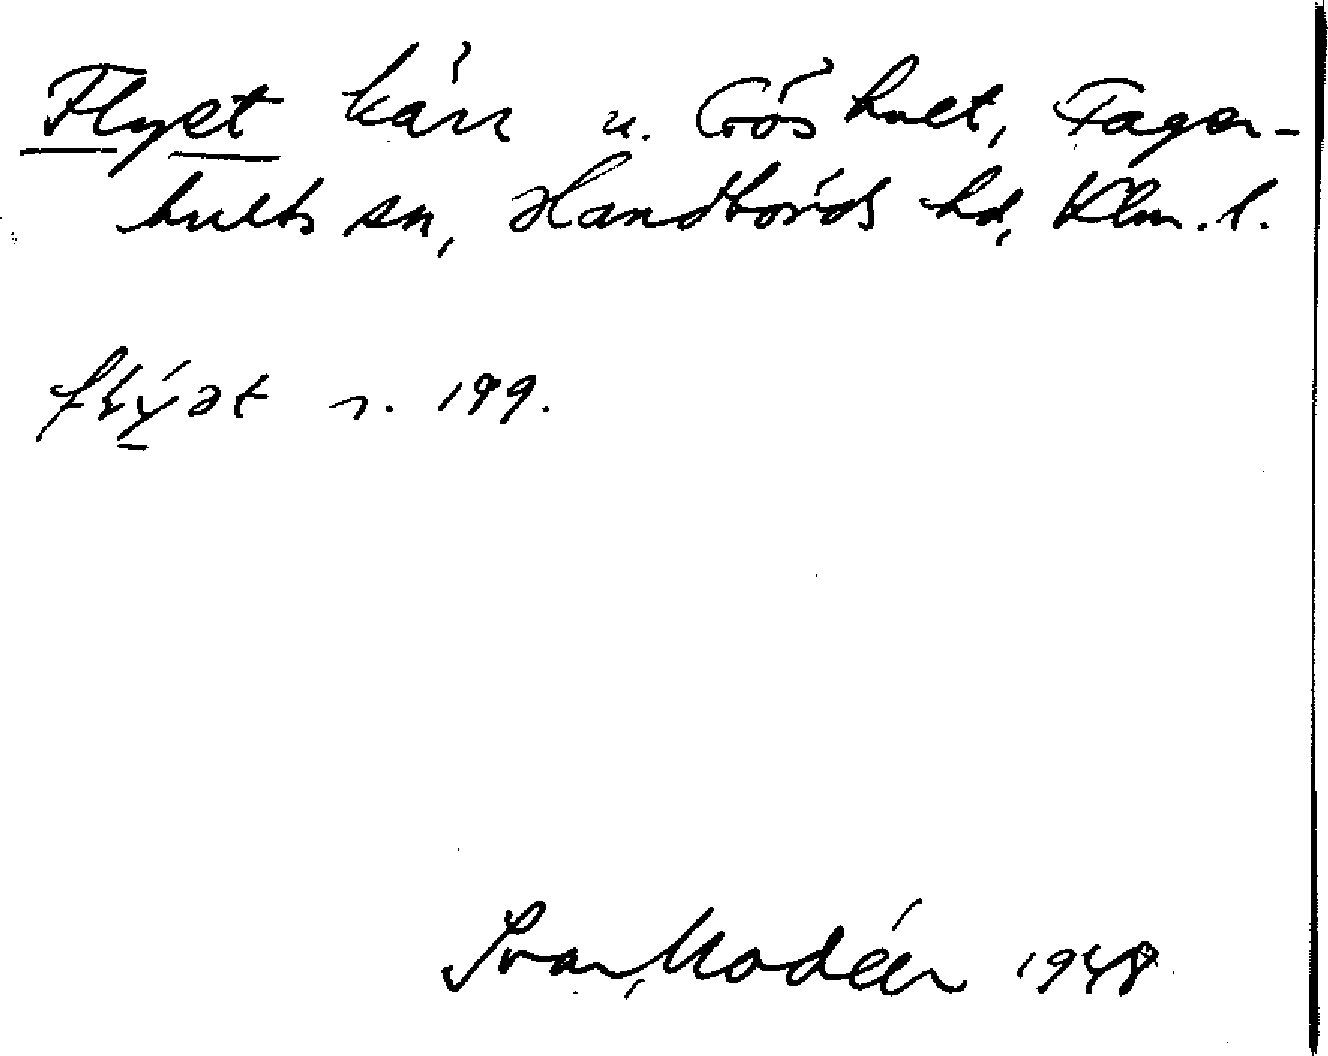 Flyet kärr u. Gåshult, Fager-
hults sn, Handbörds hd, Klm. l.
flýət n. 199.
Ivar Modéer 1948